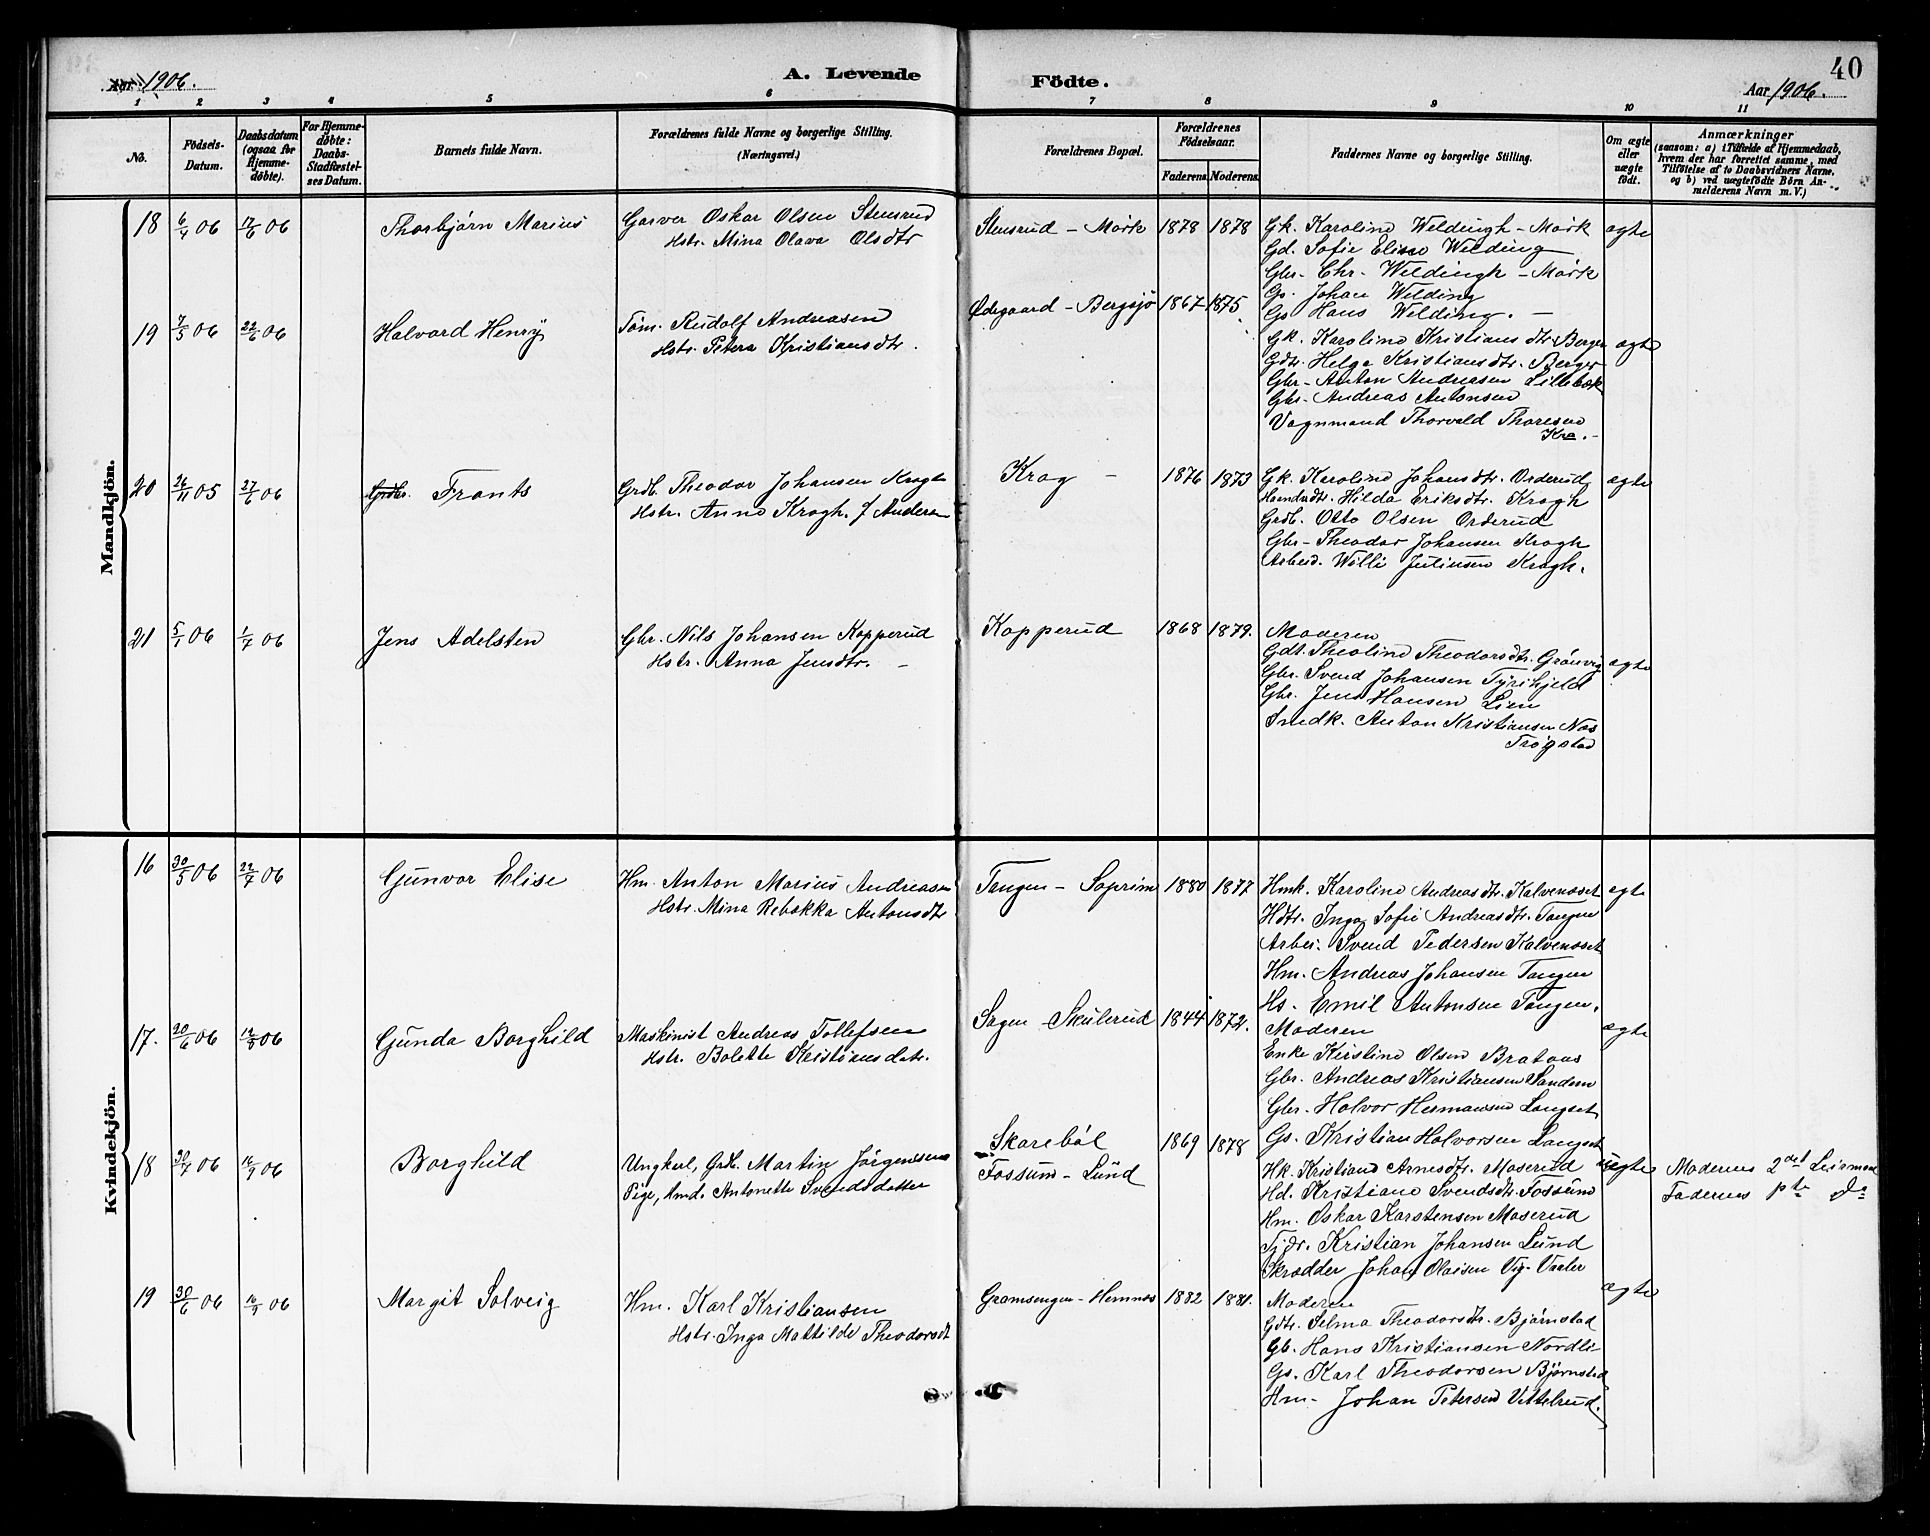 Aar 1906.
A. Levende
Födte.
40
Aar 1906.
1 2 3 4 5 6 7 8 9 10 11
No.
Födsels-
Datum.
Daabsdatum
(ogsaa for
Hjemme-
døbte).
For Hjemme-
døbte:
Daabs-
Stadfæstel-
ses Datum.
Barnets fulde Navn.
Forældrenes fulde Navne og borgerlige Stilling.
(Næringsvei.)
Forældrenes Bopæl.
Forældrenes
Födselsaar.
Faderens. Moderens.
Faddernes Navne og borgerlige Stilling.
Om ægte
eller
uægte
født.
Anmærkninger
(saasom: a) i Tilfælde af Hjemmedaab,
hvem der har forrettet samme, med
Tilföielse af to Daabsvidners Navne,
og b) ved uægtefödte Börn An-
melderens Navn m. V.)
Mandkjön.
18 6/4 06 17/6 06 Thorbjørn Marius
Garver Oskar Olsen Stensrud
Hstr. Mina Olava Olsdtr
Stensrud - Mørk 1878 1878
Gk. Karoline Weldingh - Mørk
Gd. Sofie Elise Welding
Gbr - Chr. Weldingh - Mørk
Gs. Johan Welding
Gs Hans Welding. -
ægte
19 7/5 06 22/6 06 Halvard Henry
Tøm. Rudolf Andreasen
Hstr. Petera Kristiansdtr.
Ødegaard - Bergsjø 1867 1875
Gk. Karoline Kristiansdtr. Berger
Gdtr. Helga Kristiansdtr. Berger
Gbr - Anton Andreasen Lillebæk
Gbr - Andreas Antonsen
Vognmand Thorvald Thoresen
Kra. -
ægte
20 26/11 05 27/6 06 Frants
Grdb. Theodor Johansen Krogh
Hstr. Anna Krogh. f Andersen
Krog - 1876 1873
Gk. Karoline Johansdtr. Orderud
Hilda Eriksdtr. Krogh
Grdb. Otto Olsen Orderud
Gbr - Theodor Johansen Krogh
Arbeid. Willi Juliusen Krogh.
ægte
21 5/1 06 1/7 06 Jens Adelsten
Gbr. Nils Johansen Kopperud
Hstr. Anna Jensdtr. -
Kopperud 1868 1879.
Moderen
Gdt. Theoline Theodorsdtr. Grønvig
Gbr. Svend Johansen Tyrihjeld
Gbr. Jens Hansen Lien
Smdk. Anton Kristiansen Næs
Trøgstad
ægte
Kvindekjön.
16 30/5 06 22/7 06 Gunvor Elise
Hm. Anton Marius Andreasen
Hstr. Mina Rebekka Antonsdtr
Tangen - Soprim 1880 1877
Hmk. Karoline Andreasdtr. Kalvenæset
Hdtr. Inga Sofie Andreasdtr. Tangen
Arbei. Svend Pedersen Kalvenæset
Hm. Andreas Johansen Tangen
Hs. Emil Antonsen Tangen.
ægte
17. 20/6 06 12/8 06 Gunda Borghild
Maskinist Andreas Tollefsen
Hstr. Bolette Kristiansdatr.
Sagen Skulerud 1844 1872.
Moderen
Enke Kristine Olsen Brataas
Gbr. Andreas Kristiansen Sandem
Gbr. Halvor Hermansen Langset
Gs. Kristian Halvorsen Langset
ægte
18 30/7 06 16/9 06 Borghild
Ungkerl, Grdb. Martin Jørgensen
Pige, Hmd. Antonette Svendsdatter
Skarebøl
Fossum - Lund
1869 1878
Hk. Kristiane Arnesdtr. Moserud
Hd. Kristiane Svendsdtr. Fossum
Hm. Oskar Karstensen Moserud
Tjdr. Kristian Johansen Lund
Skrædder Johan Olaisen Vig - Vaaler
uægte
Moderens 2det Leiermaal
Faderens 1ste do
19 30/6 06 16/9 06 Margit Solveig
Hm. Karl Kristiansen
Hstr. Inga Mathilde Theodorsdt
Gramsengen - Hemnæs 1882 1881.
Moderen
Gdtr. Selma Theodorsdtr. Bjørnstad
Gb. Hans Kristiansen Nordli
Gs. Karl Theodorsen Bjørnstad
Hm - Johan Petersen Vittelrud.
ægte